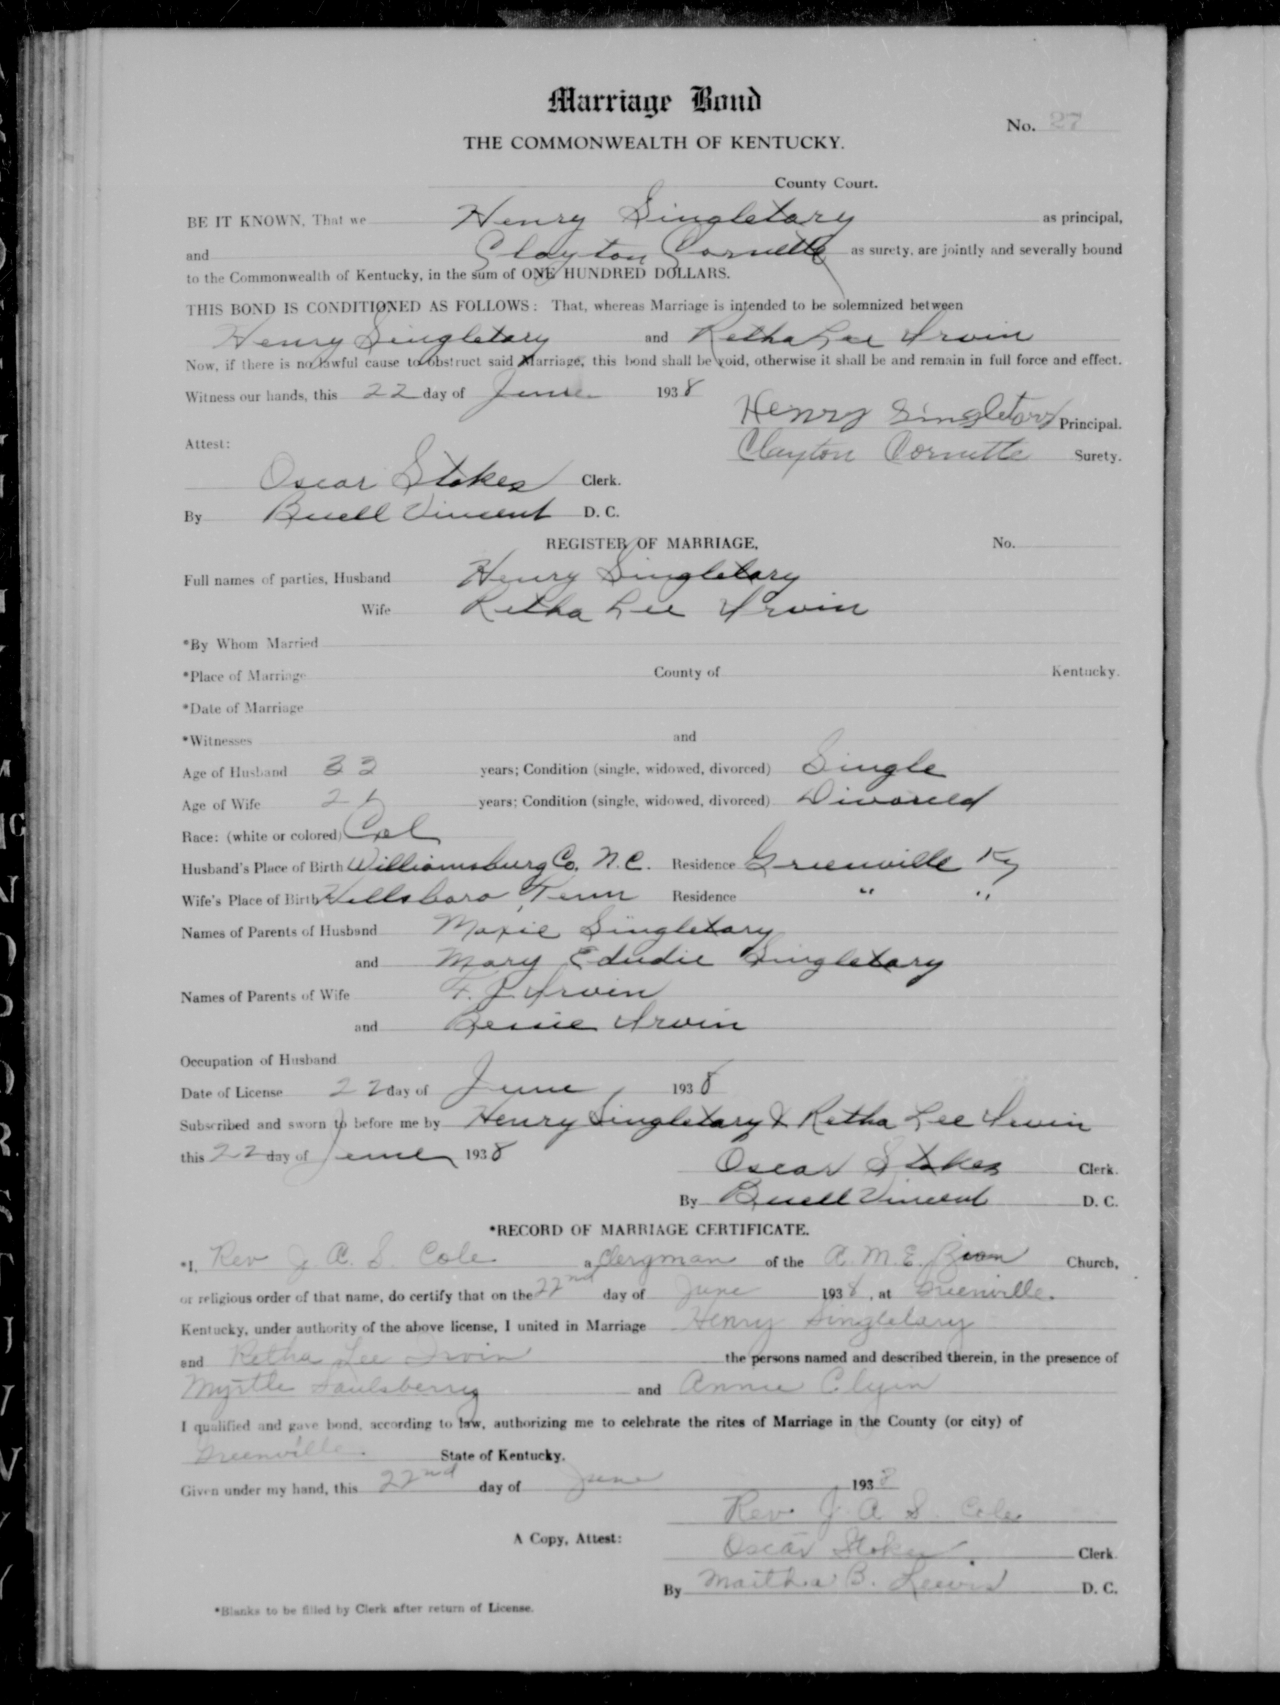 Marriage Bond
No. 27
THE COMMONWEALTH OF KENTUCKY.
County Court.
BE IT KNOWN, That we Henry Singletary as principal,
and Clayton Cornette as surety, are jointly and severally bound
to the Commonwealth of Kentucky, in the sum of ONE HUNDRED DOLLARS.
THIS BOND IS CONDITIONED AS FOLLOWS: That, whereas Marriage is intended to be solemnized between
Henry Singletary and Retha Lee Irvin
Now, if there is no lawful cause to obstruct said Marriage, this bond shall be void, otherwise it shall be and remain in full force and effect.
Witness our hands, this 22 day of June 1938
Henry Singletary Principal.
Attest:
Clayton Cornette Surety.
Oscar Stokes Clerk.
By Buell Vincent D. C.
REGISTER OF MARRIAGE, No.
Full names of parties, Husband Henry Singletary
Wife Retha Lee Irvin
*By Whom Married
*Place of Marriage County of Kentucky.
*Date of Marriage
*Witnesses and
Age of Husband 33 years; Condition (single, widowed, divorced) Single
Age of Wife years; Condition (single, widowed, divorced) Divorced
Race: (white or colored) Col
Husband's Place of Birth Williamsburg Co. N.C. Residence Greenville Ky
Wife's Place of Birth Hillsboro, Tenn Residence " "
Names of Parents of Husband Moxie Singletary
and Mary Singletary
Names of Parents of Wife F. J. Irvin
and Irvin
Occupation of Husband
Date of License 22 day of June 1938
Subscribed and sworn to before me by Henry Singletary & Retha Lee Irvin
this 22 day of June, 1938
Oscar Stokes Clerk.
By Buell Vincent D. C.
*RECORD OF MARRIAGE CERTIFICATE.
*I, Rev J. A. S. Cole a Clergman of the A. M. E. Zion Church,
or religious order of that name, do certify that on the 22nd day of June 1938, at Greenville.
Kentucky, under authority of the above license, I united in Marriage Henry Singletary
and Retha Lee Irvin the persons named and described therein, in the presence of
Myrtle Saulsberry and Annie
I qualified and gave bond, according to law, authorizing me to celebrate the rites of Marriage in the County (or city) of
Greenville. State of Kentucky.
Given under my hand, this 22nd day of June 1938
Rev. J. A. S. Cole
A Copy, Attest:
Oscar Stokes Clerk.
By Martha B. Lewis D. C.
*Blanks to be filled by Clerk after return of License.